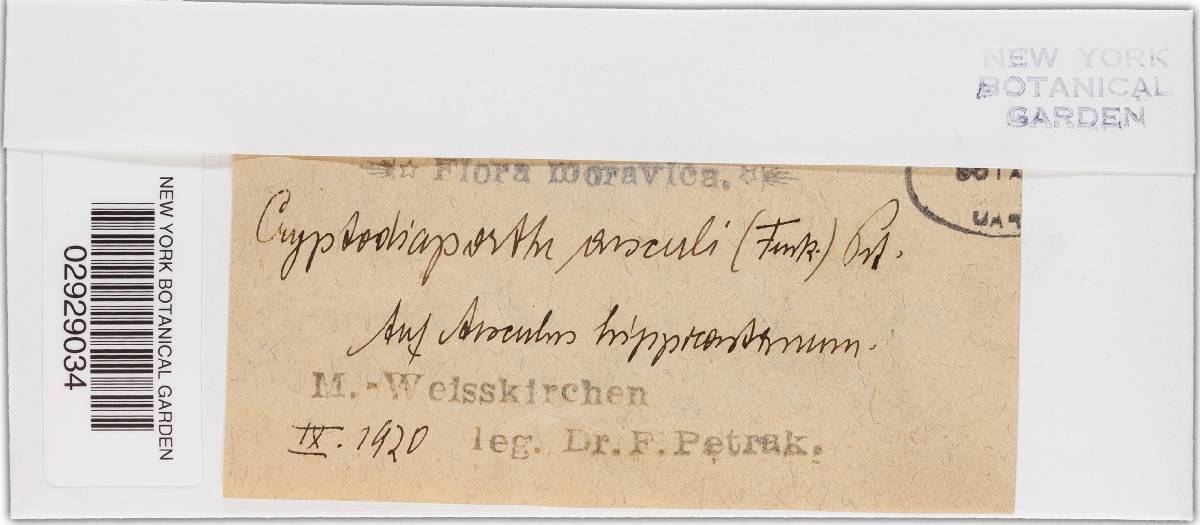 NEW YORK
BOTANICAL
GARDEN
Flora moravica.
BOTA
GAR
Cryptodiaporthe aesculi (Fuck.) Pet.
Auf Aesculus hippocastanum.
M.-Weisskirchen
IX. 1920 leg. Dr. F. Petrak.
NEW YORK BOTANICAL GARDEN
02929034